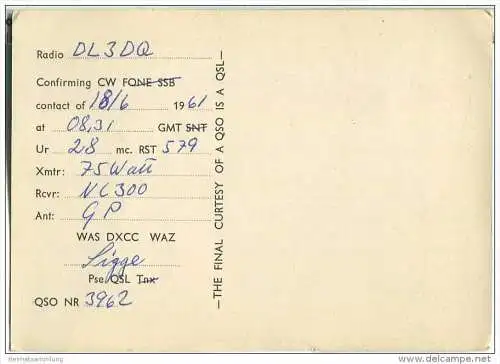 Radio DL3DQ
Confirming CW FONE SSB
contact of 18/6 1961
at 08,31 GMT SNT
Ur 28 mc. RST 579
Xmtr: 75 Watt
Rcvr: NC300
Ant: GP
WAS DXCC WAZ
Sigge
Pse QSL Tnx
QSO NR 3962
—THE FINAL CURTESY OF A QSO IS A QSL—
heimatsammlung
Copyright © delcampe.net